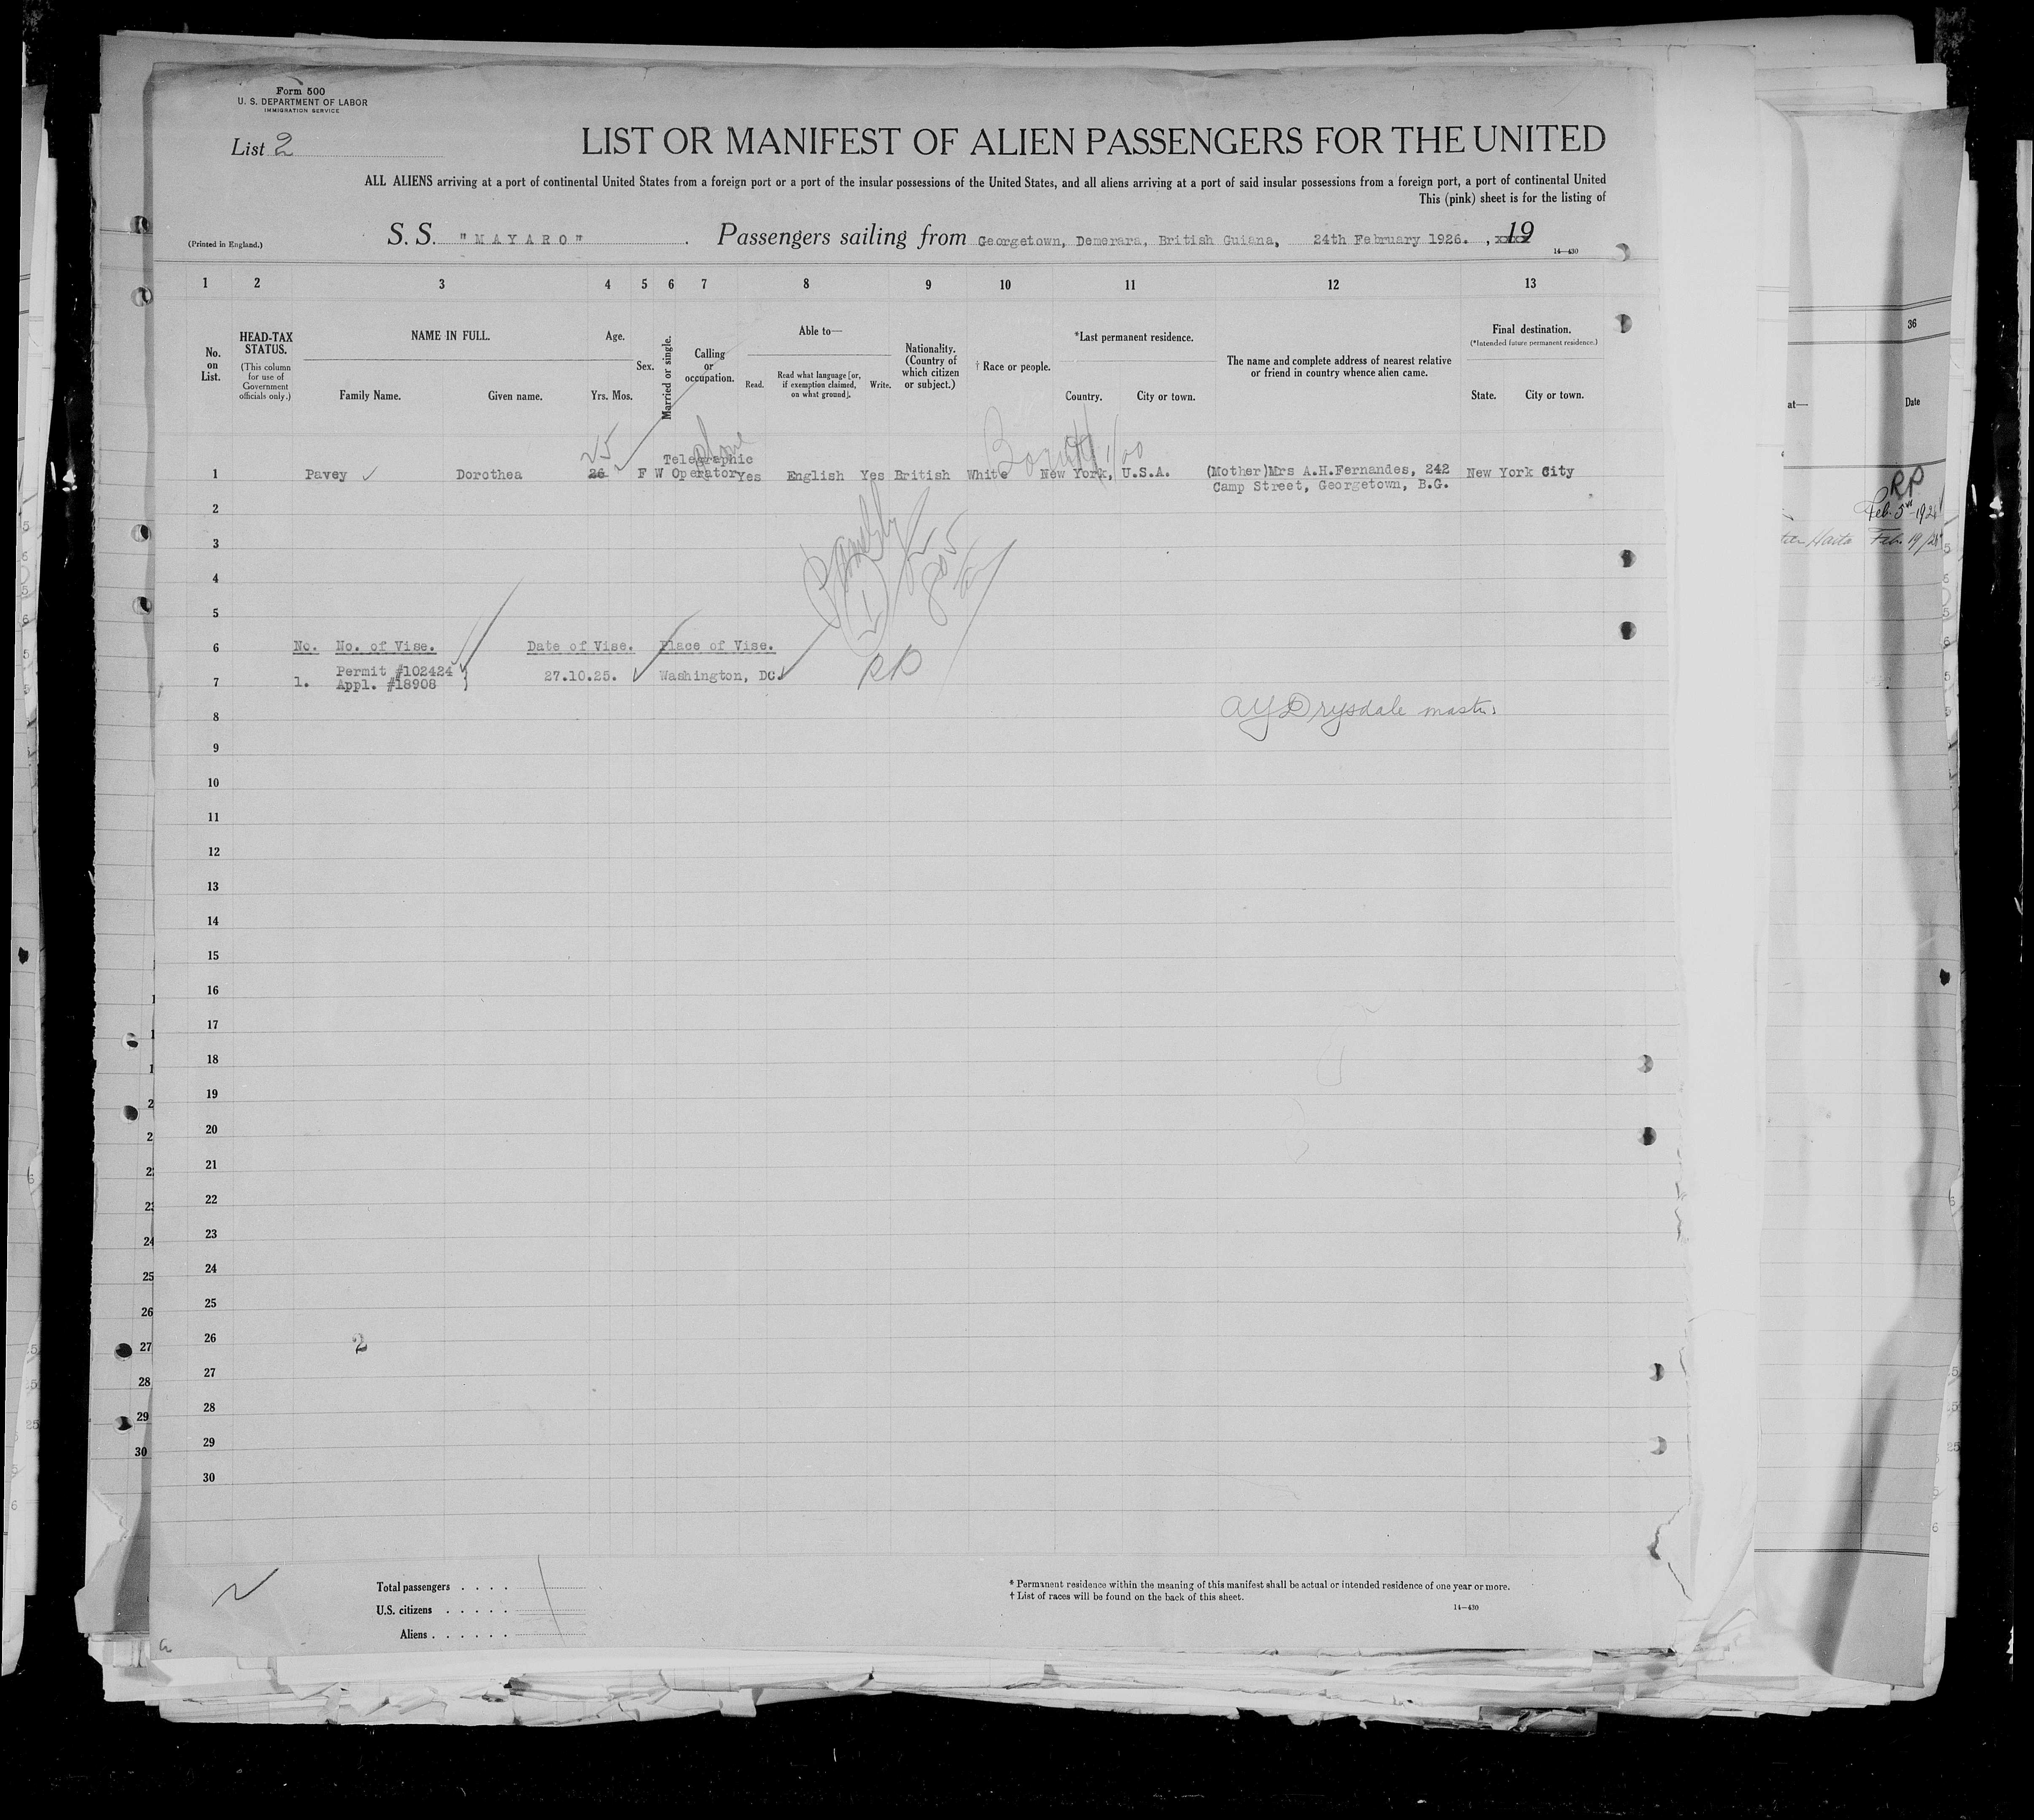 Form 500
U. S. DEPARTMENT OF LABOR
IMMIGRATION SERVICE
List 2
LIST OR MANIFEST OF ALIEN PASSENGERS FOR THE UNITED
ALL ALIENS arriving at a port of continental United States from a foreign port or a port of the insular possessions of the United States, and all aliens arriving at a port of said insular possessions from a foreign port, a port of continental United
This (pink) sheet is for the listing of
(Printed in England.)
S. S. "MAYARO" . Passengers sailing from Georgetown, Demerara, British Guiana, 24th February 1926. , xxxx 19
14—430
1 2 3 4 5 6 7 8 9 10 11 12 13
No. on List.
HEAD-TAX STATUS.
(This column for use of Government officials only.)
NAME IN FULL.
Family Name. Given name.
Age.
Yrs. Mos.
Sex.
Married or single.
Calling or occupation.
Able to—
Read. Read what language [or, if exemption claimed, on what ground]. Write.
Nationality. (Country of which citizen or subject.)
† Race or people.
*Last permanent residence.
Country. City or town.
The name and complete address of nearest relative or friend in country whence alien came.
Final destination.
(*Intended future permanent residence.)
State. City or town.
25
1 Pavey Dorothea 26 F W Telegraphic Operator Yes English Yes British White New York, U.S.A. (Mother)Mrs A.H.Fernandes, 242 New York City
Camp Street, Georgetown, B.G.
2
3
4
5
6 No. No. of Vise. Date of Vise. Place of Vise.
Permit #102424
7 1. Appl. #18908 27.10.25. Washington, DC.
RP
8 AY Drysdale master
9
10
11
12
13
14
15
16
17
18
19
20
21
22
23
24
25
26 2
27
28
29
30
Total passengers . . . .
U.S. citizens . . . . .
Aliens . . . . . .
* Permanent residence within the meaning of this manifest shall be actual or intended residence of one year or more.
† List of races will be found on the back of this sheet.
14—430
36
at—
Date
RP
24
25
26
27
28
29
30